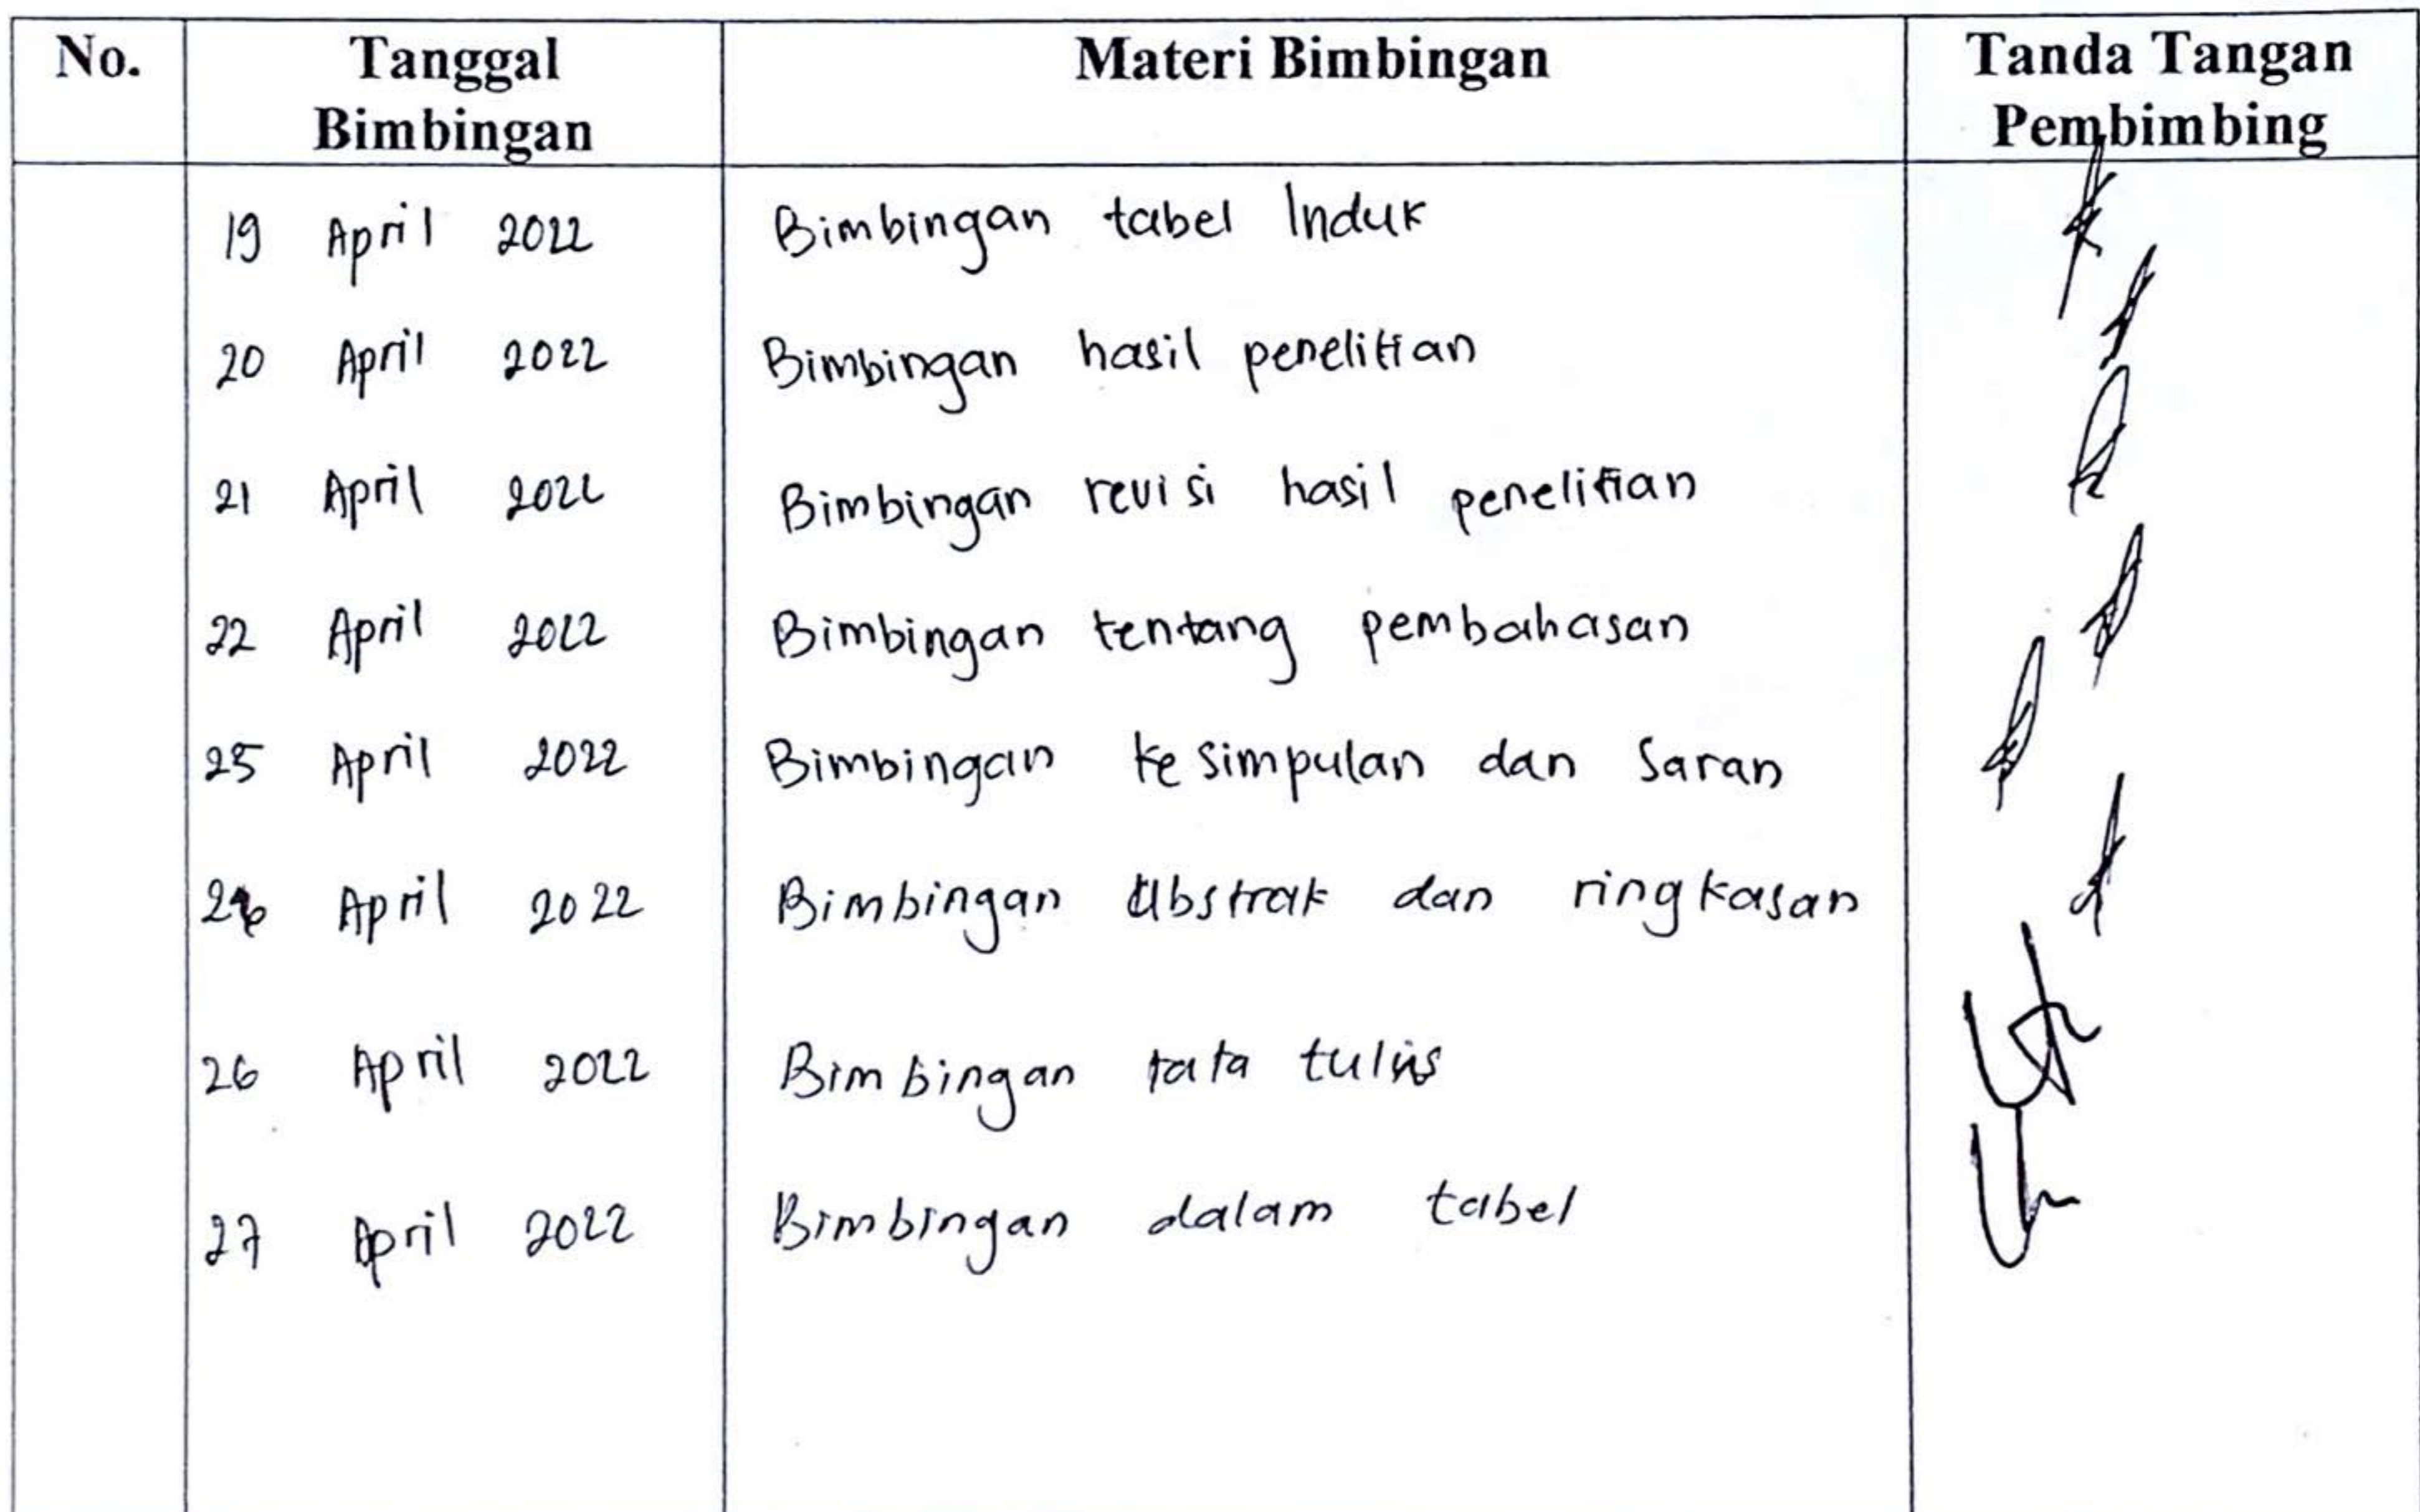 No. Tanggal Bimbingan Materi Bimbingan Tanda Tangan Pembimbing
19 April 2022 Bimbingan tabel Induk
20 April 2022 Bimbingan hasil penelitian
21 April 2022 Bimbingan revisi hasil penelitian
22 April 2022 Bimbingan tentang pembahasan
25 April 2022 Bimbingan kesimpulan dan Saran
April 2022 Bimbingan Abstrak dan ringkasan
26 April 2022 Bimbingan tata tulis
27 April 2022 Bimbingan dalam tabel